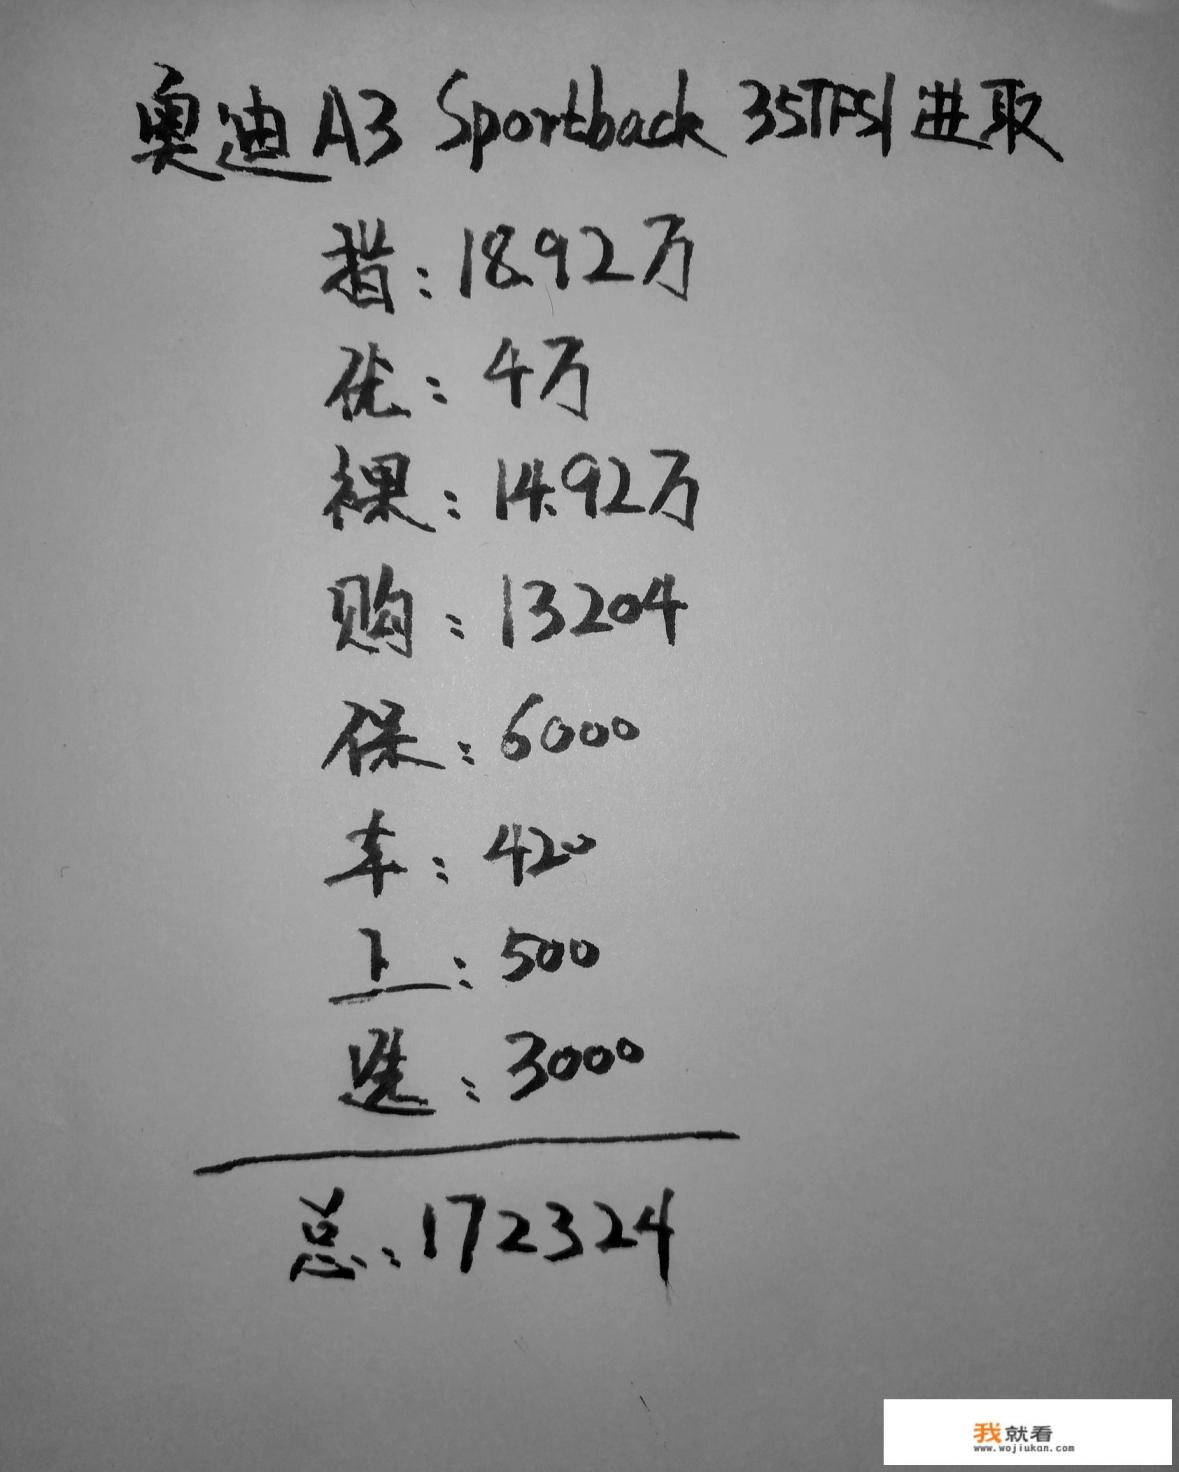 奥迪 A3 Sportback 35TFSI 进取
指:18.92万
优:4万
裸:14.92万
购:13204
保:6000
车:420
上:500
选:3000
总:172324
我就看
www.wojiukan.com